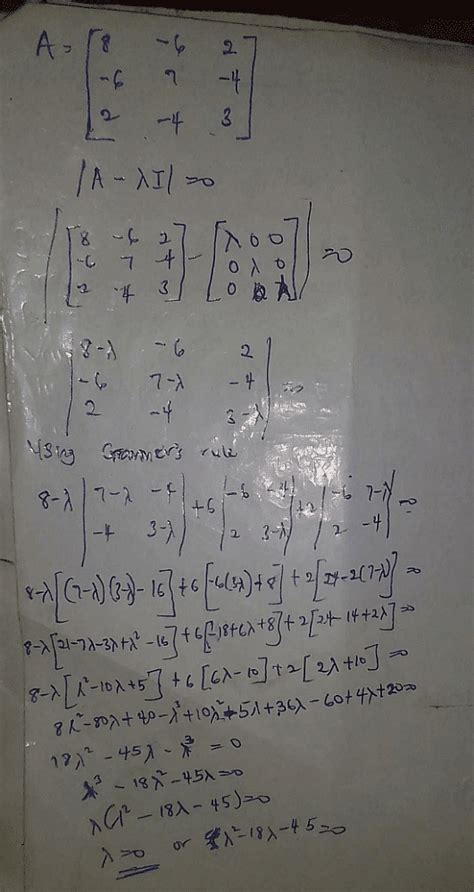 A = [8 -6 2
-6 7 -4
2 -4 3]
|A - λI| = 0
|[8 -6 2
-6 7 -4
2 -4 3] - [λ 0 0
0 λ 0
0 0 λ]| = 0
|8-λ -6 2
-6 7-λ -4
2 -4 3-λ| =0
Using Crammer's rule
8-λ |7-λ -4
-4 3-λ| +6 |-6 -4
2 3-λ| +2 |-6 7-λ
2 -4| =0
8-λ[(7-λ)(3-λ)-16] +6[-6(3-λ)+8] +2[24-2(7-λ)] =0
8-λ[21-7λ-3λ+λ²-16] +6[-18+6λ+8] +2[24-14+2λ] =0
8-λ[λ²-10λ+5] +6[6λ-10] +2[2λ+10] =0
8λ²-80λ+40-λ³+10λ²-5λ+36λ-60+4λ+20=0
18λ² - 45λ - λ³ = 0
λ³ - 18λ² - 45λ=0
λ(λ² - 18λ - 45)=0
λ=0 or λ²-18λ-45=0